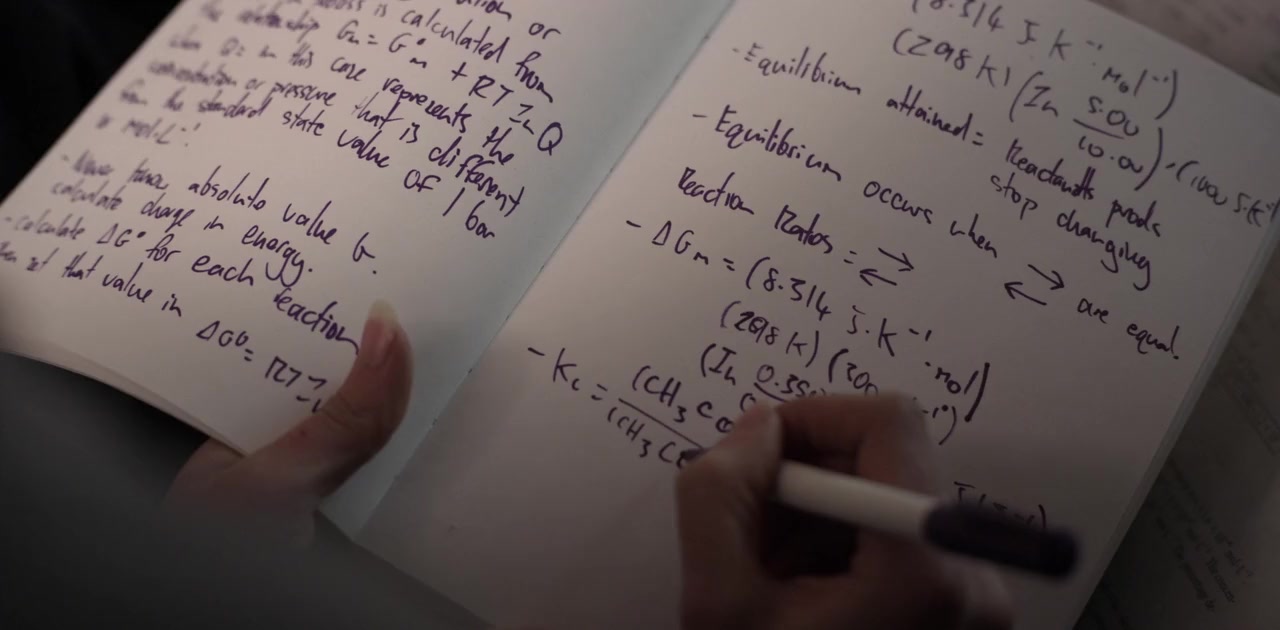 or
is calculated from
the relationship Gm = G°m + RT ln Q
when Q = in this case represents the
concentration or pressure that is different
from the standard state value of 1 bar
or mol·L⁻¹
- Never have absolute value G.
calculate change in energy.
- calculate ΔG° for each reaction
then set that value in ΔG° = RT
(8.314 J·K⁻¹·mol⁻¹)
(298 K) (In 5.00/10.00)
- Equilibrium attained = Reactants prods
stop changing
- Equilibrium occurs when ⇄ are equal.
Reaction Ratos = ⇄
- ΔGm = (8.314 J·K⁻¹·mol)
(298 K)
(In 0.35
- Kc = (CH3 CO
(CH3 CO